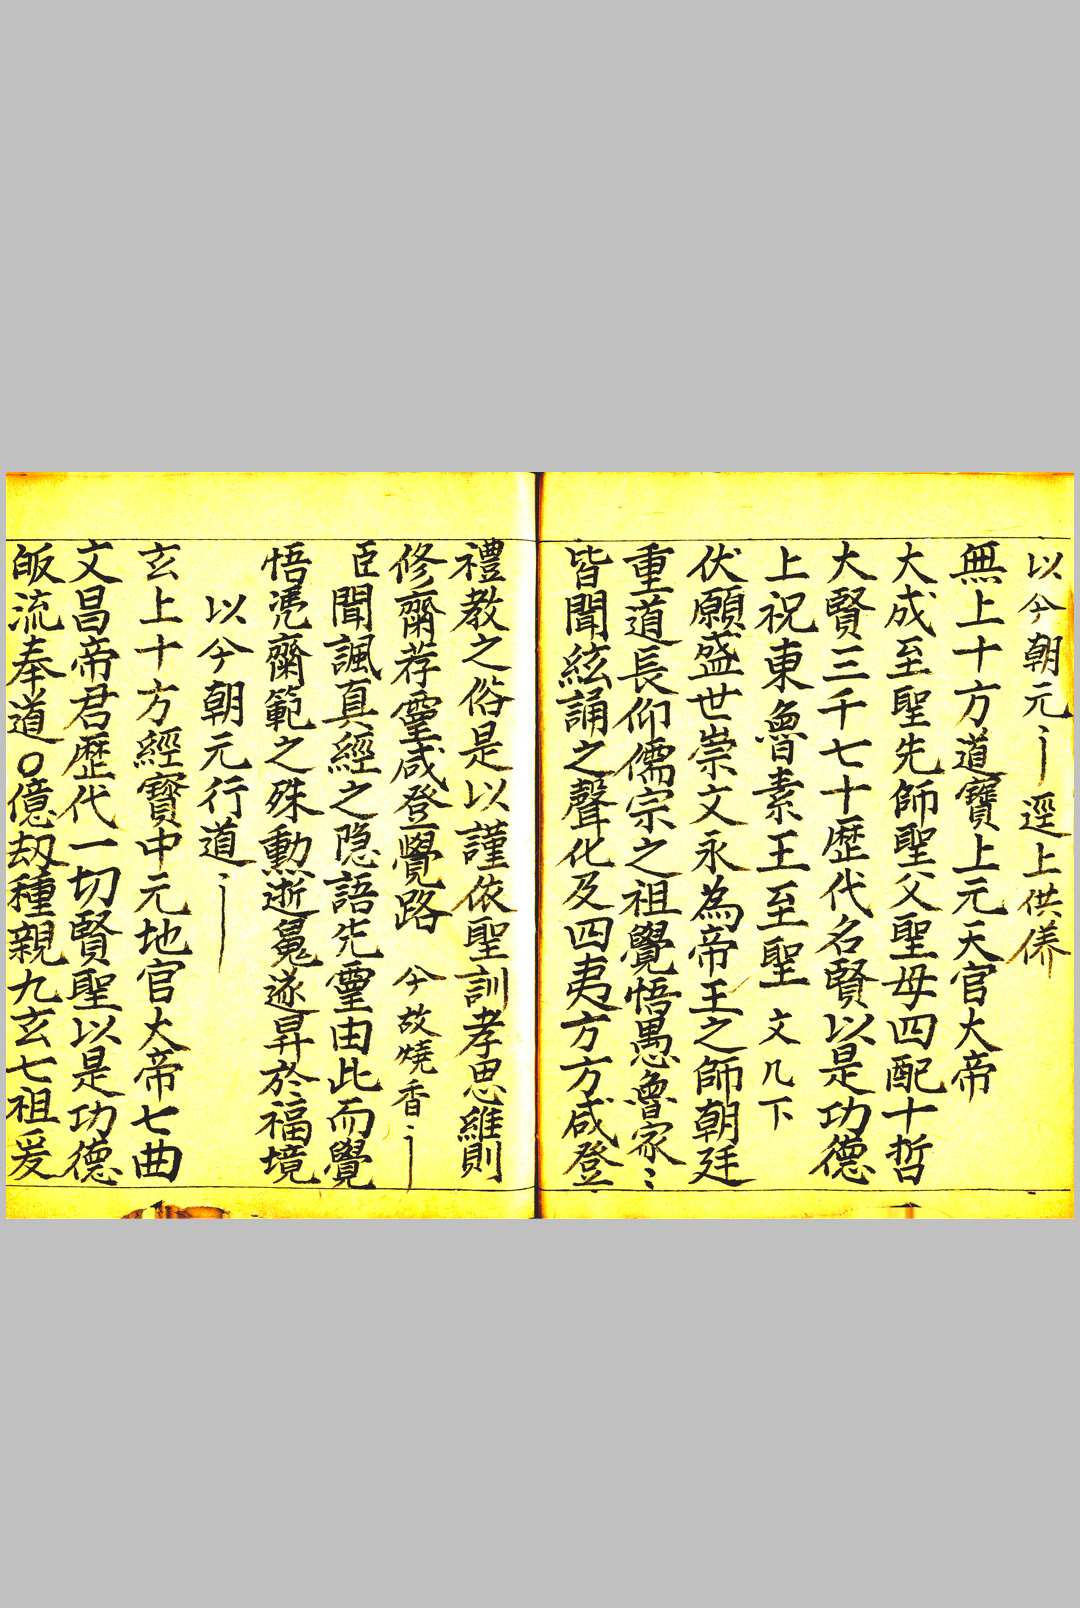 以今朝元〻丨逕上供養
無上十方道寶上元天官大帝
大成至聖先師聖父聖母四配十哲
大賢三千七十歷代名賢以是功德
上祝東魯素王至聖文几下
伏願盛世崇文永為帝王之師朝廷
重道長仰儒宗之祖覺悟愚魯家〻
皆聞絃誦之聲化及四夷方方咸登
禮教之俗是以謹依聖訓孝思維則
修齋荐靈咸登覺路 今故燒香〻丨
臣聞諷真經之隐語先靈由此而覺
悟凭齋範之殊勲逝䰟遂昇於福境
以今朝元行道〻丨
玄上十方經寶中元地官大帝七曲
文昌帝君歷代一切賢聖以是功德
皈流奉道〇億刼種親九玄七祖爰